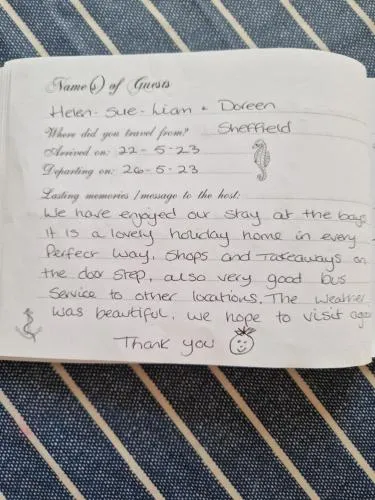 Name(s) of Guests
Helen - Sue - Liam & Doreen
Where did you travel from? Sheffield
Arrived on: 22-5-23
Departing on: 26-5-23
Lasting memories / message to the host:
We have enjoyed our stay at the bay,
It is a lovely holiday home in every
Perfect way, Shops and Takeaways on
the door step, also very good bus
Service to other locations. The weather
was beautiful, we hope to visit again
Thank you